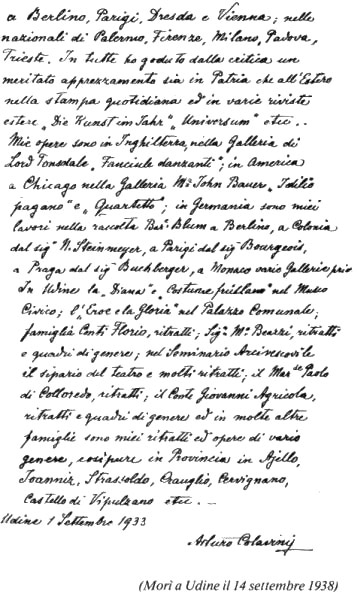 a Berlino, Parigi, Dresda e Vienna; nelle
nazionali di Palermo, Firenze, Milano, Padova,
Trieste. In tutte ho goduto dalla critica un
meritato apprezzamento sia in Patria che all'Estero
nella stampa quotidiana ed in varie riviste
estere, "Die Kunst im Jahr" "Universum" etc..
Mie opere sono in Inghilterra, nella Galleria di
Lord Tonsdale "Fanciule danzanti"; in America
a Chicago nella Galleria Mr. John Bauer "Idilio
pagano" e "Quartetto"; in Germania sono miei
lavori nella raccolta Bar. Blum a Berlino, a Colonia
dal sig. N. Steinmeyer, a Parigi dal sig. Bourgeois,
a Praga dal sig. Buchberger, a Monaco varie Gallerie priv
In Udine la "Diana" e "Costume friulano" nel Museo
Civico; l'"Eroe e la Gloria" nel Palazzo Comunale;
famiglia Conti Florio, ritratti; Sig. Mr. Bearzi, ritratti
e quadri di genere; nel Seminario Arcivescovile
il sipario del teatro e molti ritratti; il Mar.se Paolo
di Colloredo, ritratti; il Conte Giovanni Agricola,
ritratti e quadri di genere ed in molte altre
famiglie sono miei ritratti ed opere di vario
genere, cosi pure in Provincia in Ajello,
Joanniz, Strassoldo, Crauglio, Cervignano,
Castello di Vipulzano etc. —
Udine 1 Settembre 1933
Arturo Colavinij
(Morì a Udine il 14 settembre 1938)